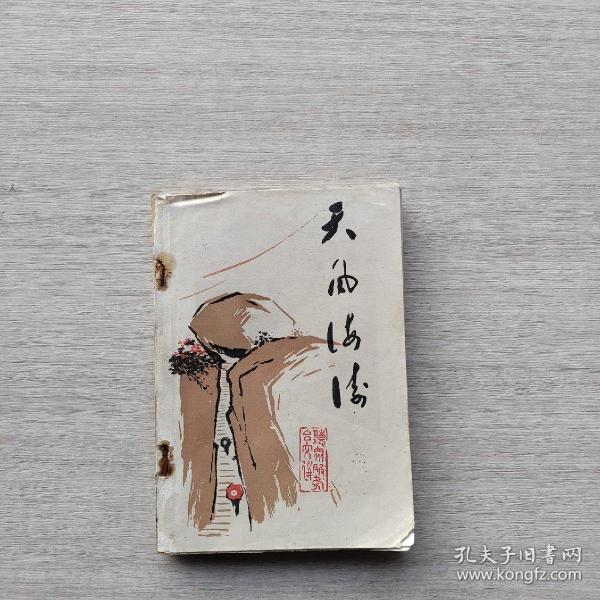 天风海涛
孔夫子旧书网
www.kongfz.com